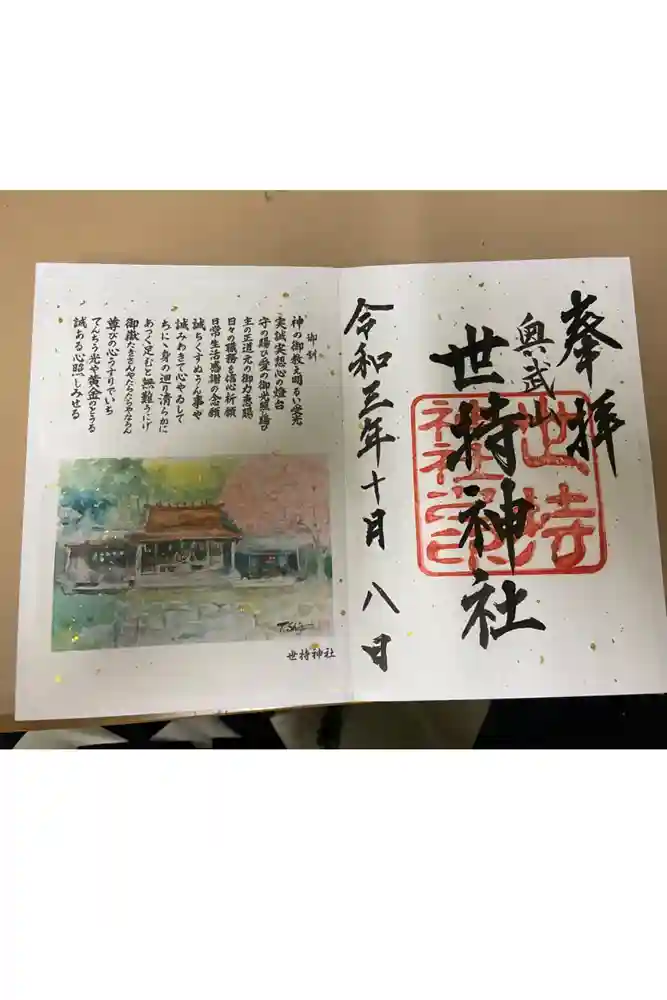 奉拝
奥武山
世持神社
世持
神社之印
令和三年十月八日
御訓
神の御教え明るい栄光
実誠実想心の燈台
守の賜ひ愛の御光照し賜ひ
主の正道元の御力恵賜
日々の職務を信心祈願
日常生活感謝の念願
誠ちくすぬうん事や
誠みわきて心やゐして
ちにゝ身の廻り清らかに
あっく足むとぅ無難うにげ
御徴たきさんやたらたらやなちん
尊びの心うすりでいち
てんちう光や黄金のとうる
誠ある心照しみせる
T.Shi
世持神社